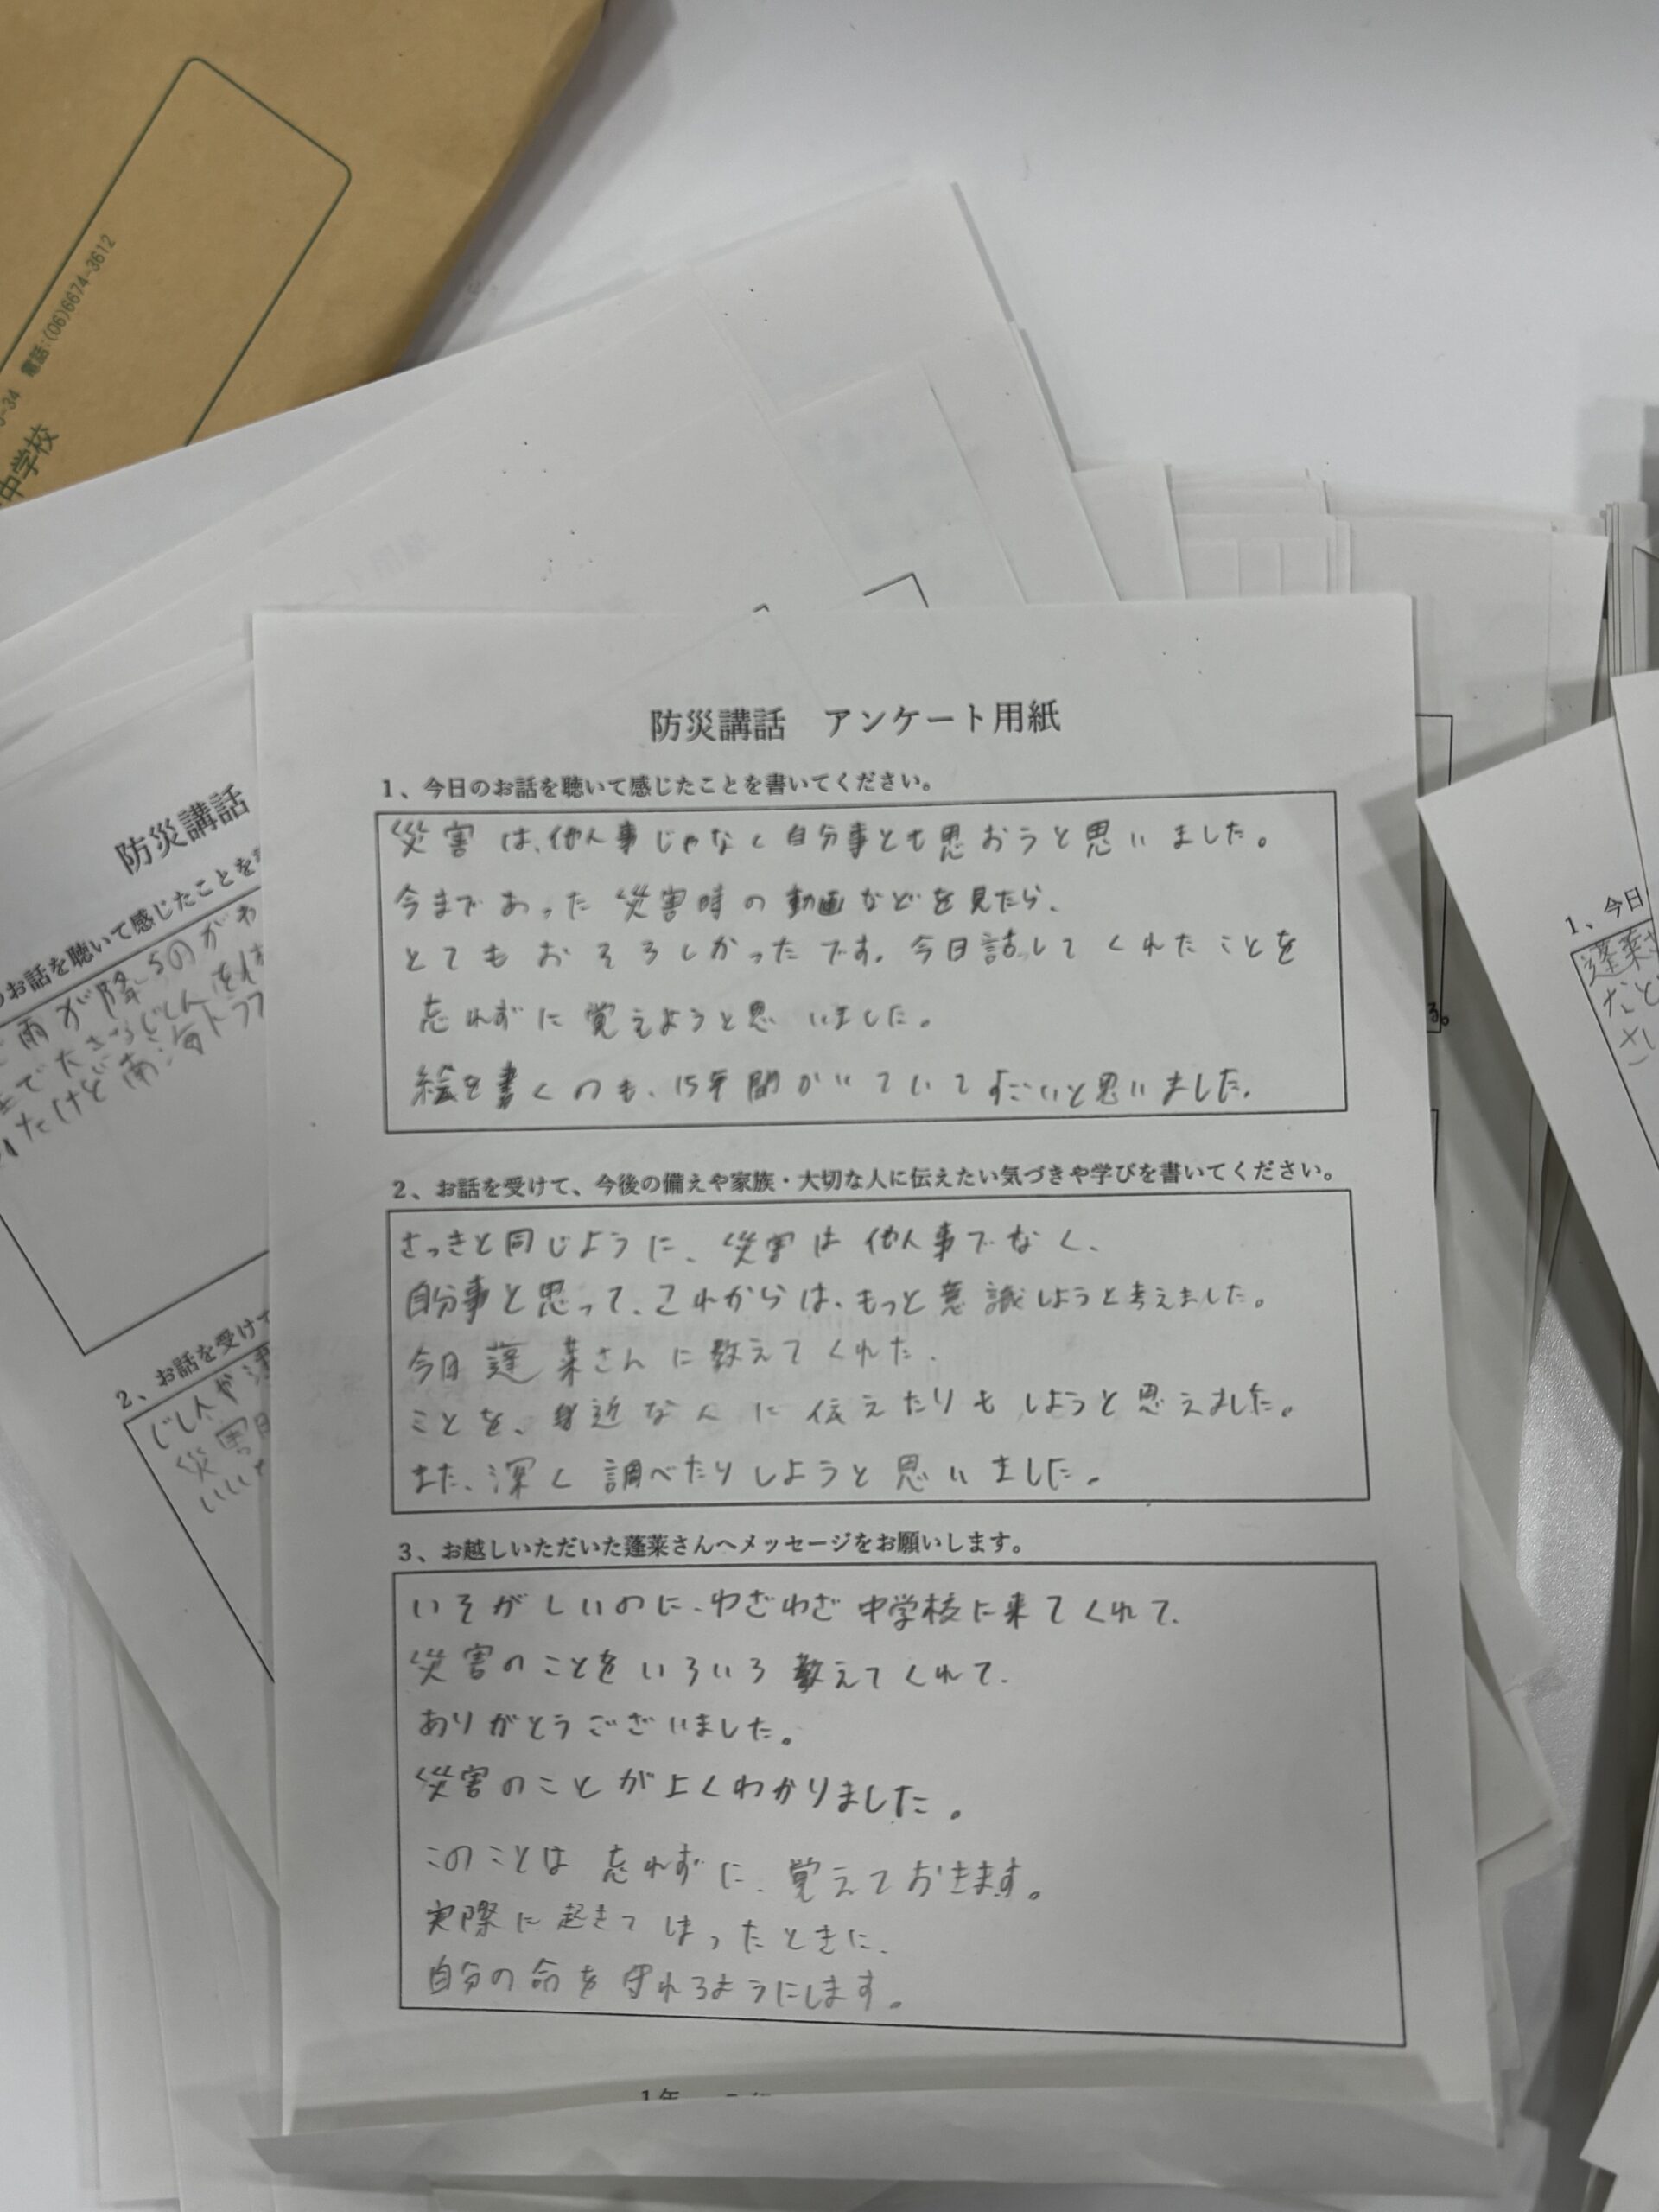 電話:(06)6674-3612
-34
中学校
防災講話 アンケート用紙
1、今日のお話を聴いて感じたことを書いてください。
災害は、他人事じゃなく自分事とも思おうと思いました。
今まであった災害時の動画などを見たら、
とてもおそろしかったです。今日話してくれたことを
忘れずに覚えようと思いました。
絵を書くのも、15年間かいていてすごいと思いました。
2、お話を受けて、今後の備えや家族・大切な人に伝えたい気づきや学びを書いてください。
さっきと同じように、災害は他人事でなく、
自分事と思って、これからは、もっと意識しようと考えました。
今日蓬莱さんに教えてくれた、
ことを、身近な人に伝えたりもしようと思えました。
また、深く調べたりしようと思いました。
3、お越しいただいた蓬莱さんへメッセージをお願いします。
いそがしいのに、わざわざ中学校に来てくれて、
災害のことをいろいろ教えてくれて、
ありがとうございました。
災害のことがよくわかりました。
このことは忘れずに、覚えておきます。
実際に起きてしまったときに、
自分の命を守れるようにします。
1年
防災講話
お話を聴いて感じたことを
雨が降るのがわ
で大きなじしんを
たけど南海トラフ
2、お話を受けて
じしんや
災害
る。
1、今日
蓬莱さ
など